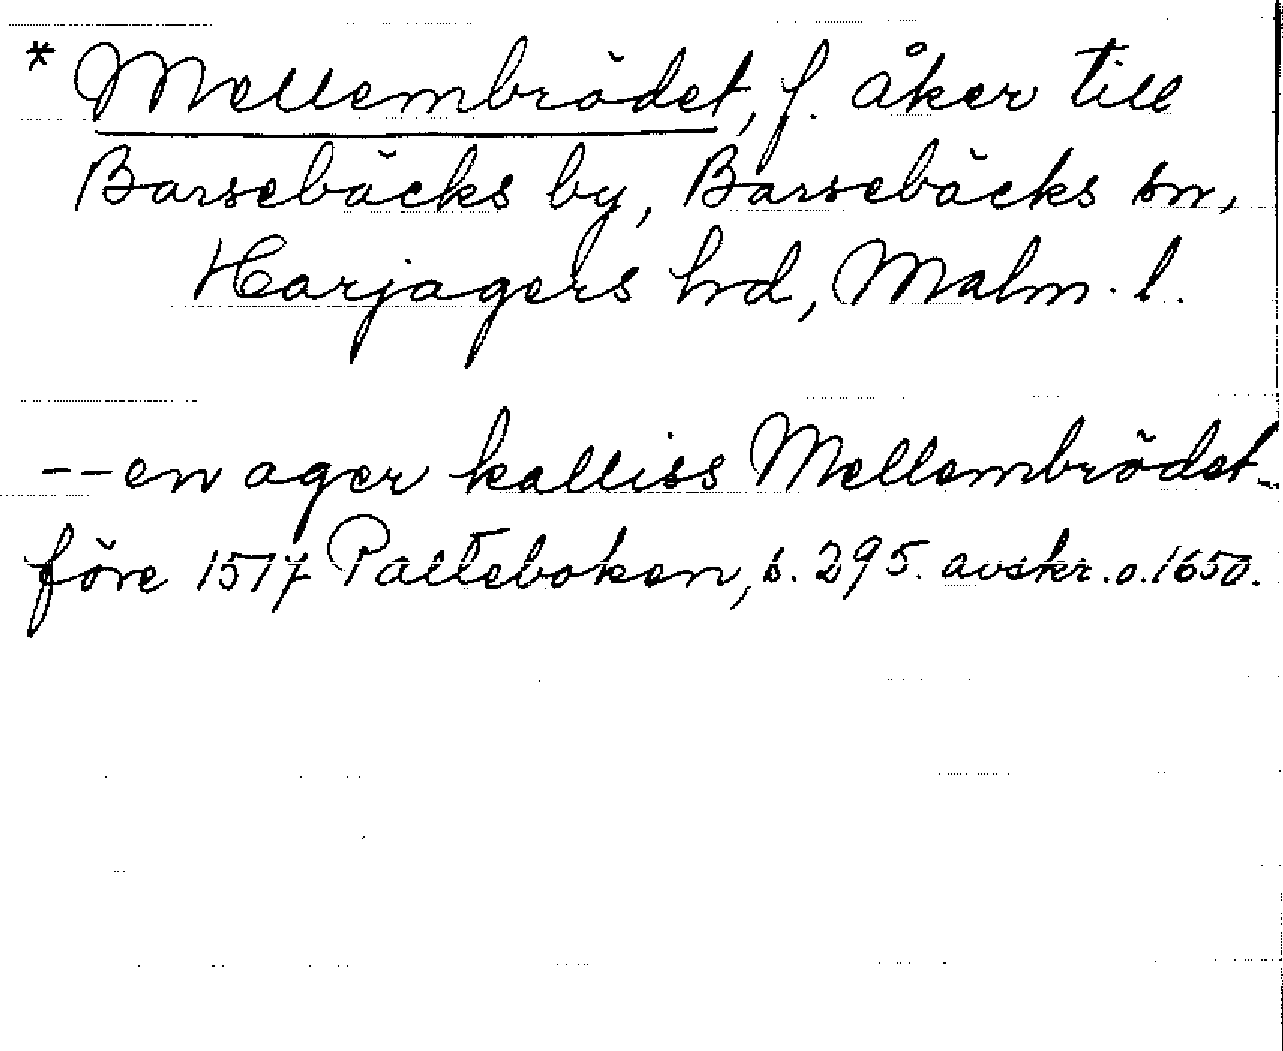 * Mellembrödet, f. åker till
Barsebäcks by, Barsebäcks sn,
Harjagers hd, Malm. l.
-- en ager kalliss Mellembrödet--
före 1517 Palteboken, s. 295. avskr. o. 1650.